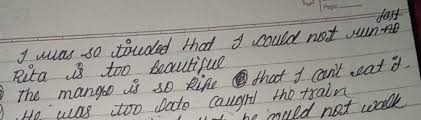 fast
I was so tired that I could not run
Rita is too beautiful
The mango is so Ripe that I can't eat it.
He was too late caught the train
he could not walk